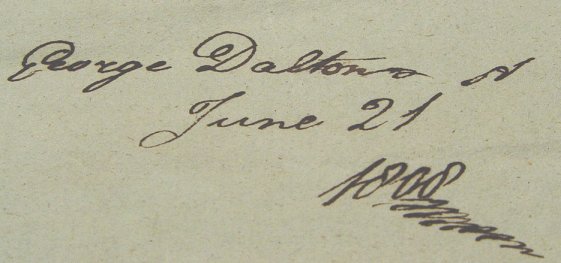 George Daltons
June 21
1808